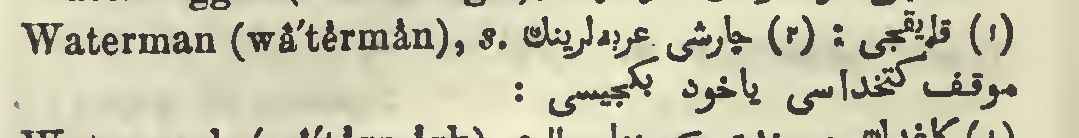 Waterman (wâ'tėrmån), s. (١) قایقجی : (٢) چارشی عربه‌لرینك
موقف كتخداسی یاخود بكجیسی :